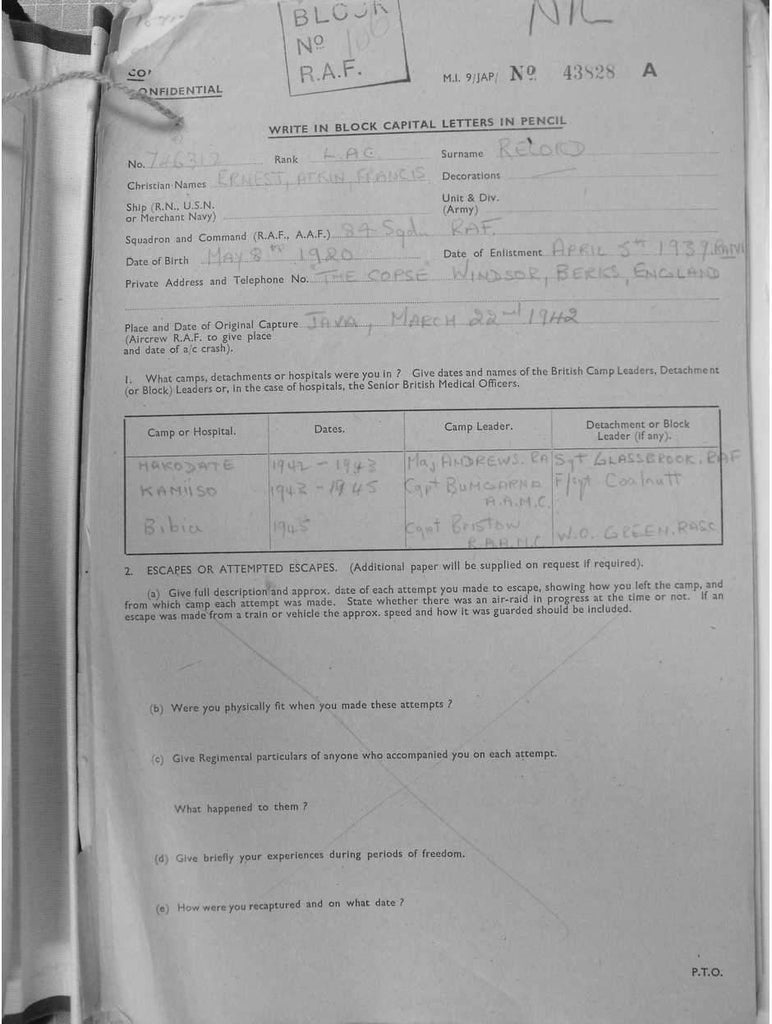 BLOCK
Nº 100
R.A.F.
NIL
CO
CONFIDENTIAL
M.I. 9/JAP/ Nº 43828 A
WRITE IN BLOCK CAPITAL LETTERS IN PENCIL
No. 746312 Rank L.A.C. Surname RELORD
Christian Names ERNEST, ATKIN, FRANCIS Decorations —
Ship (R.N., U.S.N. or Merchant Navy) Unit & Div. (Army)
Squadron and Command (R.A.F., A.A.F.) 84 Sqdn. RAF.
Date of Birth MAY 8th 1920 Date of Enlistment APRIL 5th 1939.
Private Address and Telephone No. "THE COPSE WINDSOR, BERKS, ENGLAND
Place and Date of Original Capture JAVA, MARCH 22nd 1942
(Aircrew R.A.F. to give place
and date of a/c crash).
1. What camps, detachments or hospitals were you in ? Give dates and names of the British Camp Leaders, Detachment
(or Block) Leaders or, in the case of hospitals, the Senior British Medical Officers.
Camp or Hospital. Dates. Camp Leader. Detachment or Block Leader (if any).
HAKODATE 1942 - 1943 Maj ANDREWS. RA Sgt GLASSBROOK. RAF
KAMIISO 1943 - 1945 Capt BUMGARNA A.A.M.C. F/Sgt Coalnutt
Bibia 1945 Capt Bristow R.A.A.M.C W.O. GREEN. RASC
2. ESCAPES OR ATTEMPTED ESCAPES. (Additional paper will be supplied on request if required).
(a) Give full description and approx. date of each attempt you made to escape, showing how you left the camp, and
from which camp each attempt was made. State whether there was an air-raid in progress at the time or not. If an
escape was made from a train or vehicle the approx. speed and how it was guarded should be included.
(b) Were you physically fit when you made these attempts ?
(c) Give Regimental particulars of anyone who accompanied you on each attempt.
What happened to them ?
(d) Give briefly your experiences during periods of freedom.
(e) How were you recaptured and on what date ?
P.T.O.